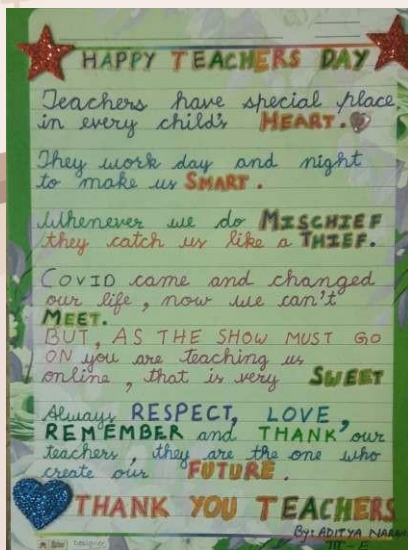 HAPPY TEACHERS DAY
Teachers have special place
in every child's HEART.
They work day and night
to make us SMART.
Whenever we do MISCHIEF
they catch us like a THIEF.
COVID came and changed
our life, now we can't
MEET.
BUT, AS THE SHOW MUST GO
ON you are teaching us
online, that is very SWEET
Always RESPECT, LOVE,
REMEMBER and THANK our
teachers, they are the one who
create our FUTURE.
THANK YOU TEACHERS
By: ADITYA